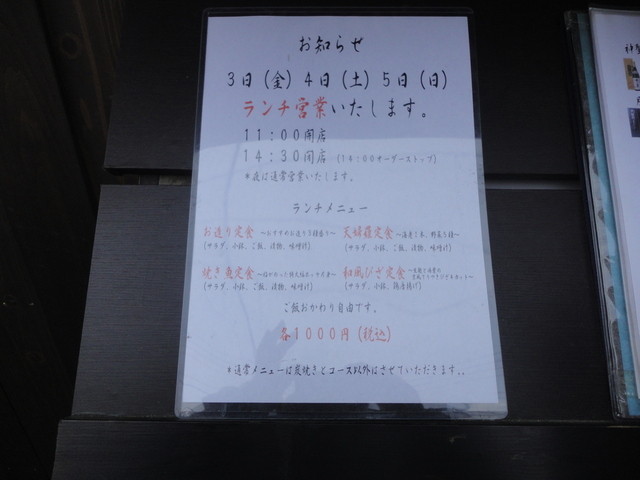 お知らせ
3日(金)4日(土)5日(日)
ランチ営業いたします。
11:00開店
14:30閉店 (14:00オーダーストップ)
*夜は通常営業いたします。
ランチメニュー
お造り定食
(サラダ、小鉢、ご飯、漬物、味噌汁)
天婦羅定食
(サラダ、小鉢、ご飯、漬物、味噌汁)
焼き魚定食
(サラダ、小鉢、ご飯、漬物、味噌汁)
和風ぴざ定食
(サラダ、小鉢、鶏唐揚げ)
ご飯おかわり自由です。
各1000円(税込)
*通常メニューは炭焼きとコース以外はさせていただきます。.